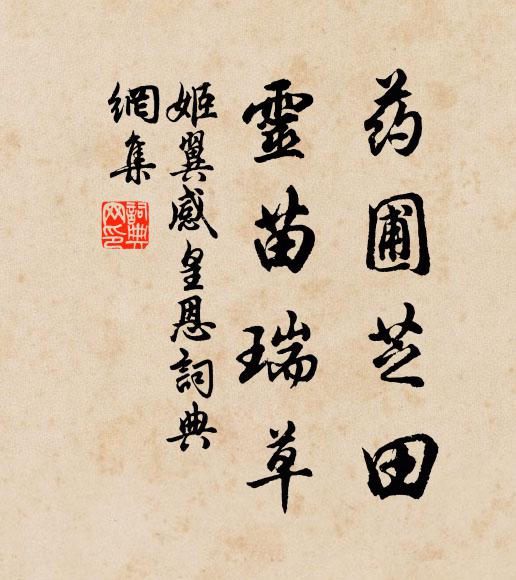 药圃芝田
靈苗瑞草
姬翼感皇恩詞典
網集
詞典
网印